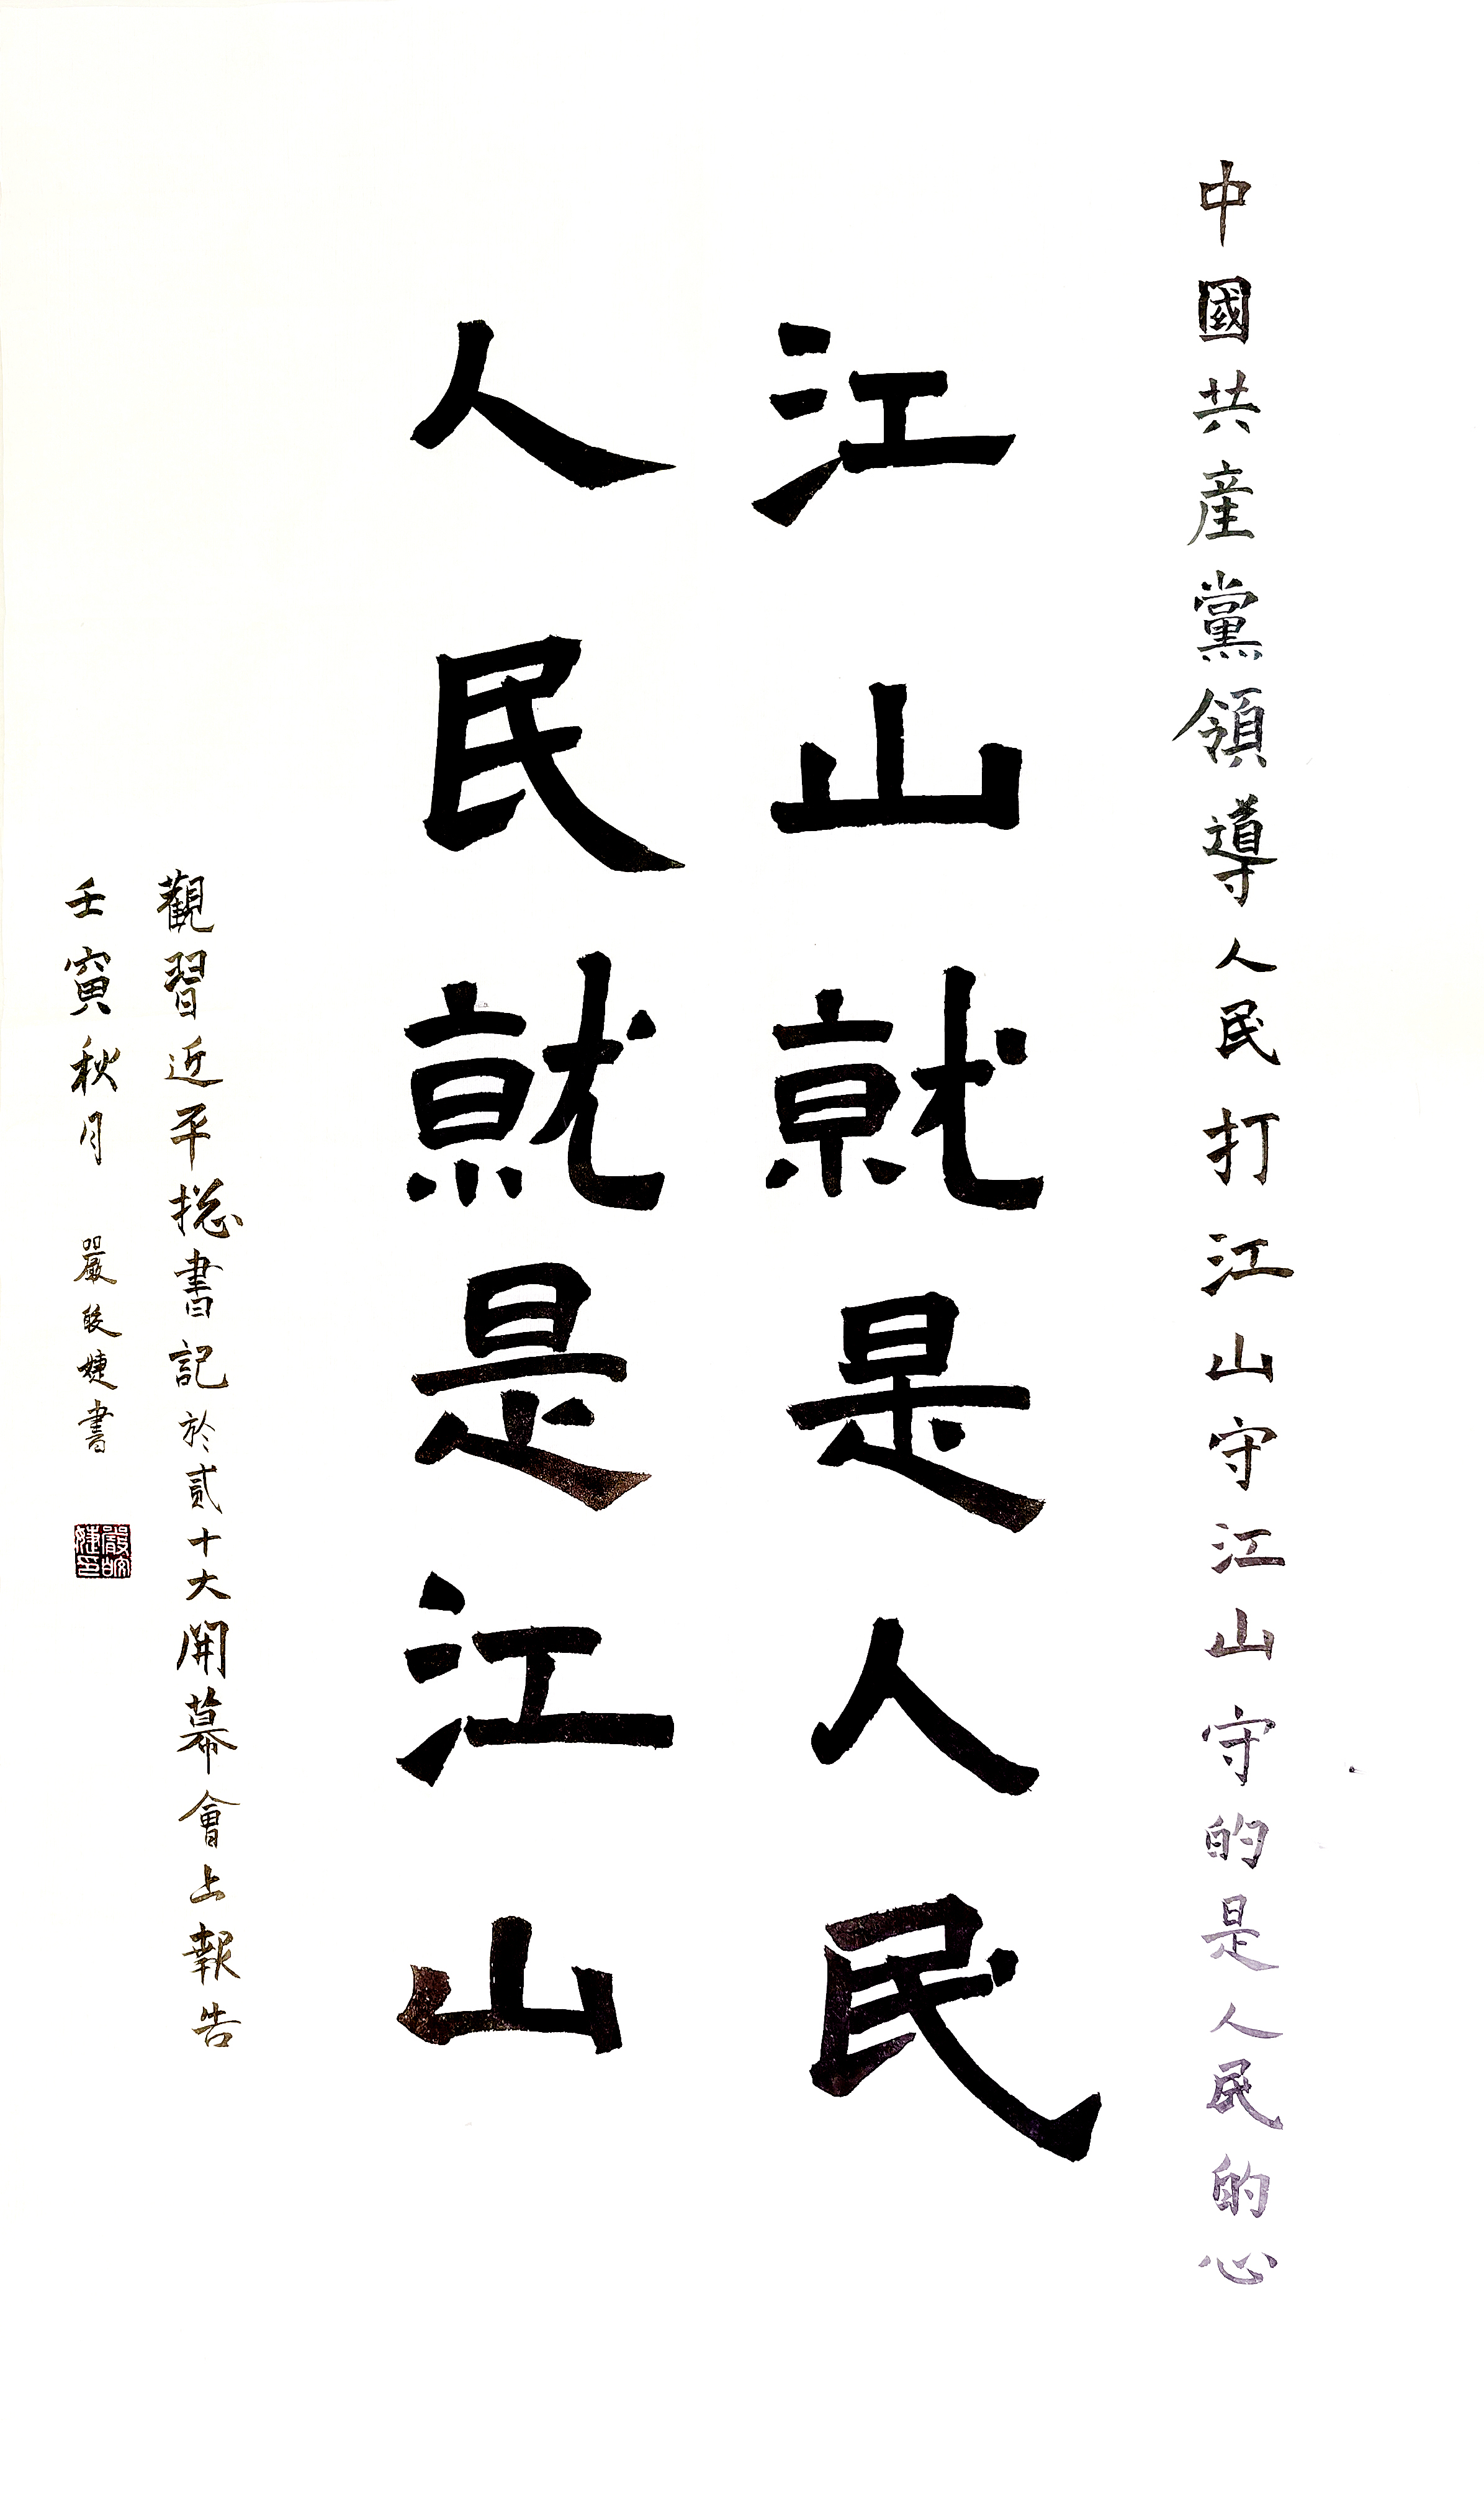 中國共産黨領導人民打江山守江山守的是人民的心
江山就是人民
人民就是江山
觀習近平總書記於貳十大開幕會上報告
壬寅秋月 嚴晈婕書